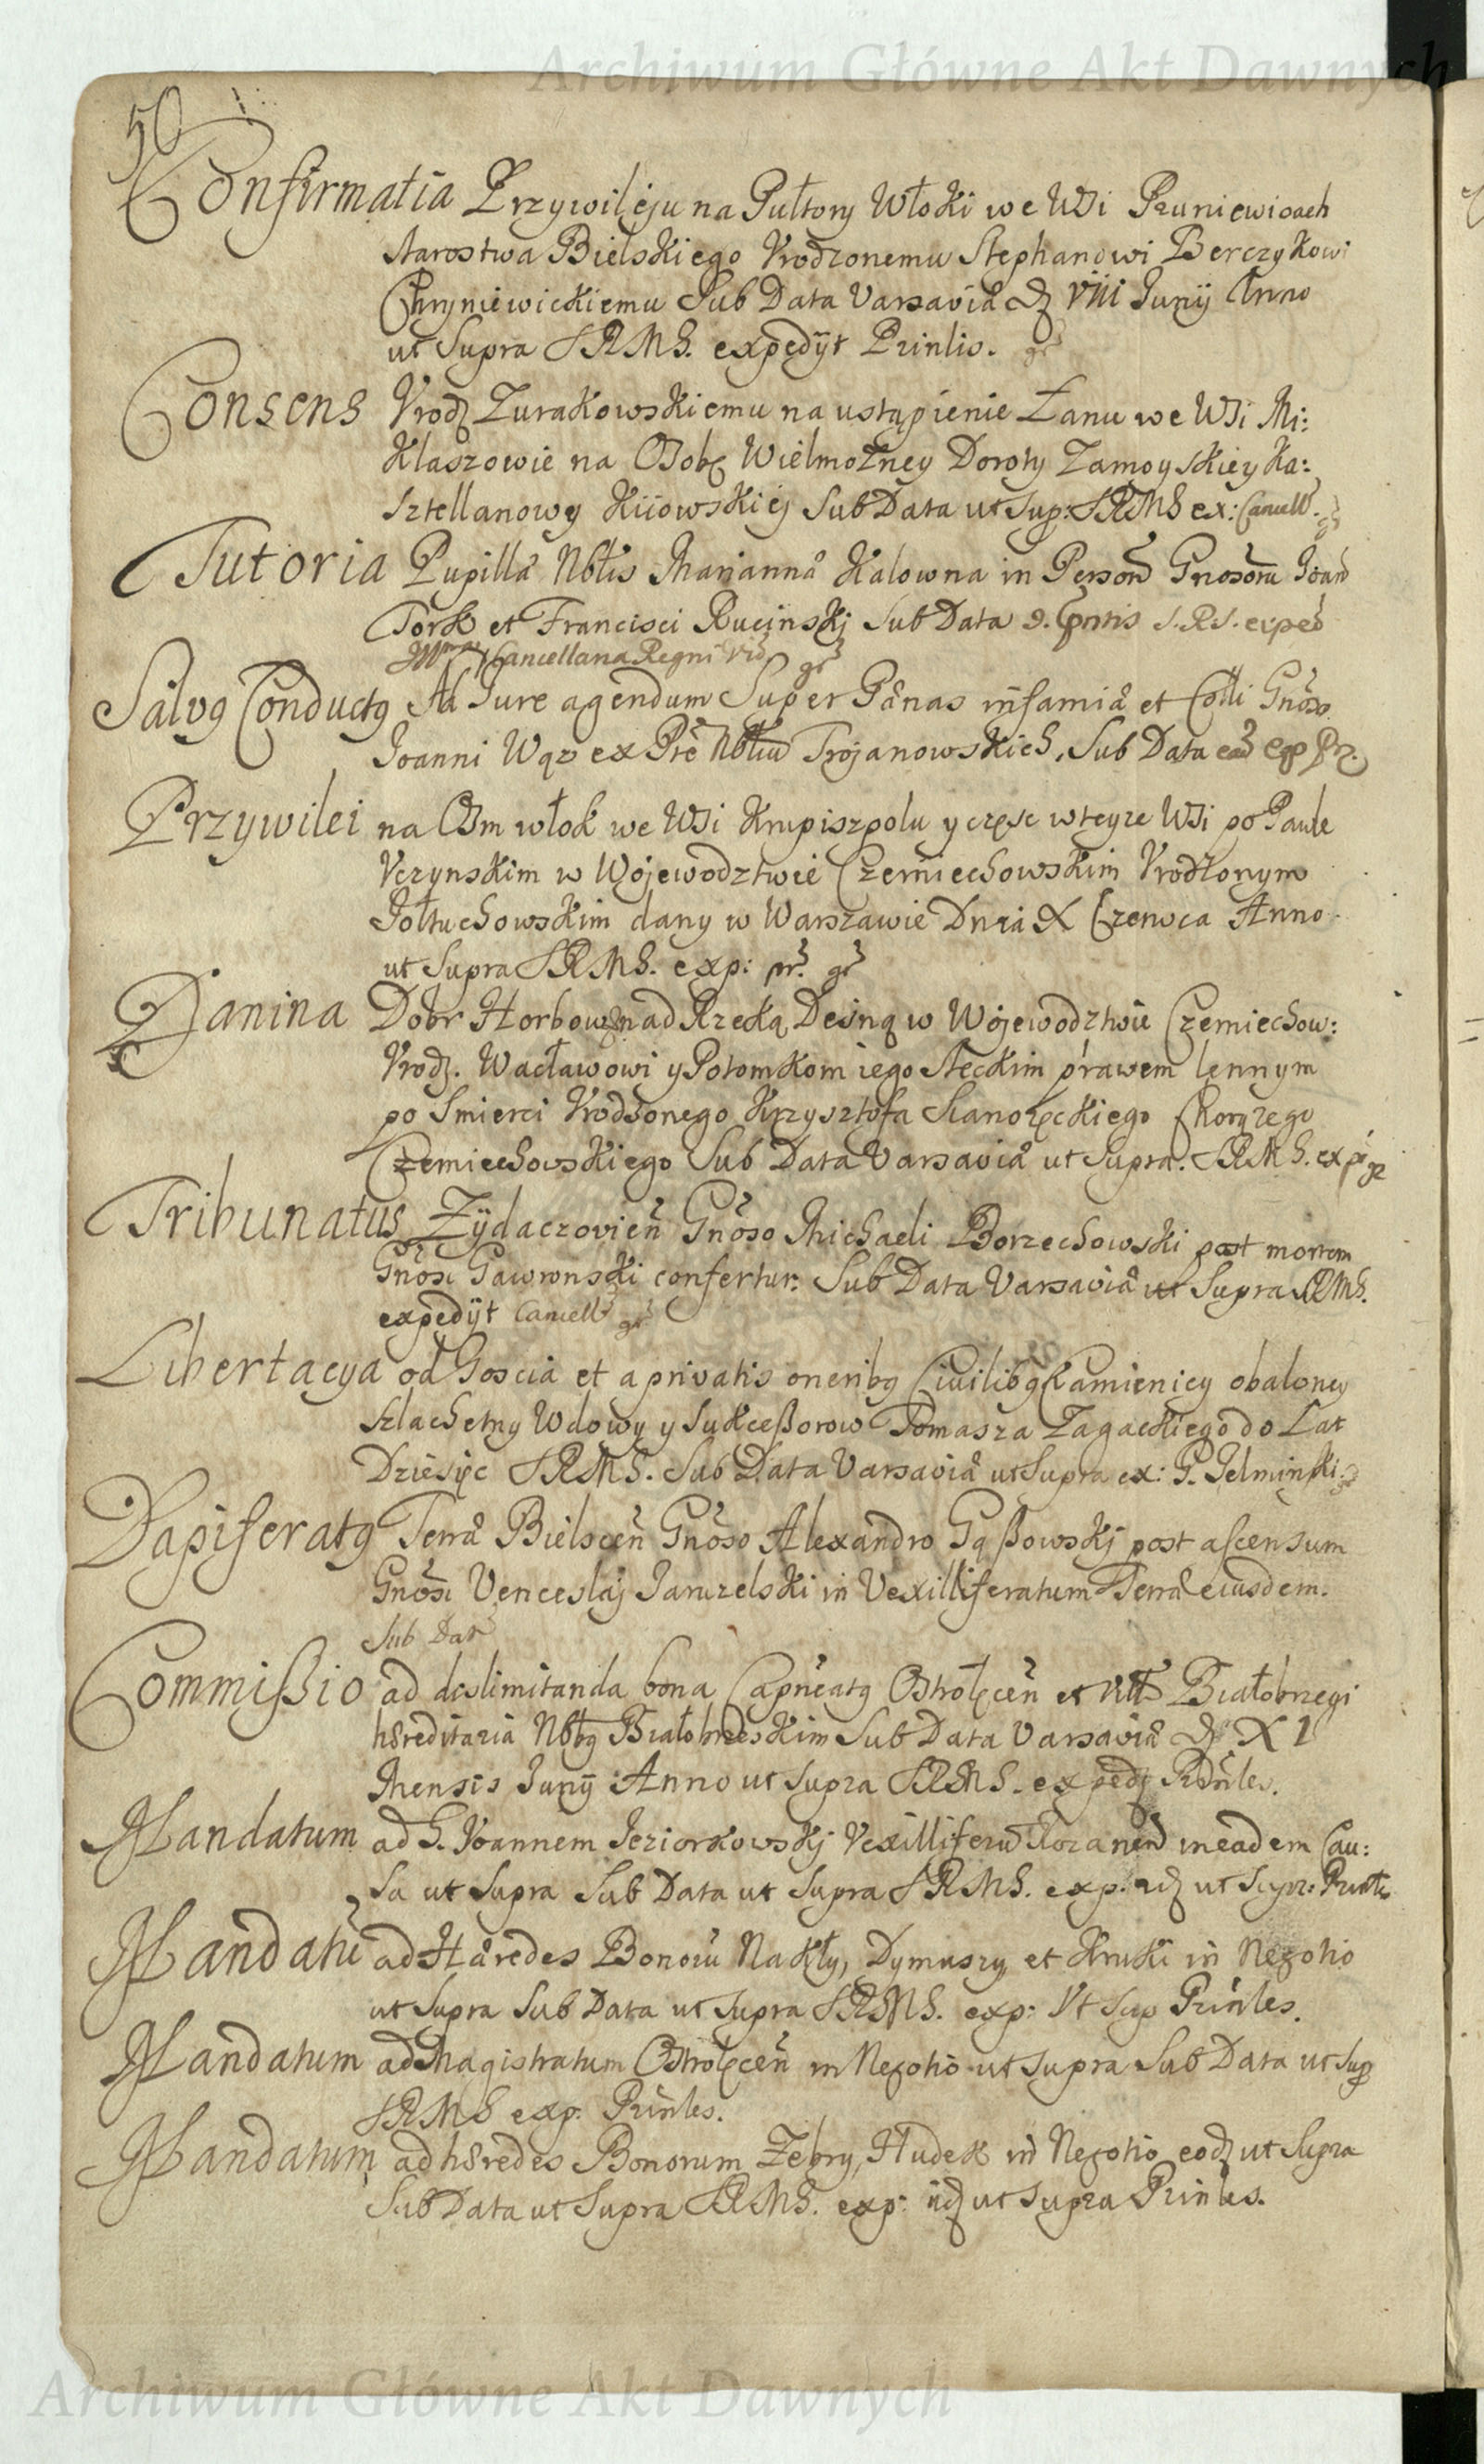 Archiwum Główne Akt Dawnych
50
Confirmatia Przywileju na Pułtory Włoki we WSi Pruniewicach
starostwa Bielskiego Vrodzonemu Stephanowi Berczykowi
Chryniewickiemu Sub Data Varsaviæ d. VIII Junÿ Anno
ut Supra SRMS. expedÿt Prinlis.
Consens Vrodz Zurakowskiemu na ustąpienie Łanu we WSi Mi:
klaszowie na OSobę Wielmożney Doroty Zamoyskiey Ka:
sztellanowy Kiiowskiej Sub Data ut Sup: SRMS ex: Cancell.
Tutoria Pupillæ Nobilis Mariannæ Kalowna in Person Gnosorum Joan
Torsk et Francisci Rucinskj Sub Data S.R.S. exped
Cancellaria Regni
Salvg Conductg Ad Jure agendum Super Pænas infamiæ et Colli Gnoso
Joanni Wąz ex Pte Nbliu Trojanowskich, Sub Data
Przywilei na OSm włok we WSi Krupiszpolu y częsc w teyze WSi po Pawle
Vczynskim w Wojewodztwie Czerniechowskim Vrodzonym
Jołtuchowskim dany w Warszawie Dnia X Czerwca Anno
ut Supra SRMS. exp: pr.
Danina Dobr Horbow nad Rzeką, Desną w Wojewodztwie Czerniechow:
Vrodz. Wacławowi y Potomkom iego Steckim prawem lennym
po Smierci Vrodzonego Krzysztofa Stanoręckiego Chorązego
Czerniechowskiego Sub Data Varsaviæ ut Supra. SRMS. ex
Tribunatus Zÿdaczovien Gnoso Michaeli Borzechowski post mortem
Gnosi Gawronski confertur: Sub Data Varsaviæ ut Supra SRMS.
expedÿt Cancell
Libertacya od Goscia et a privatis oneribg Civilibg Kamienicy obaloney
szlachetny Wdowy y Sukceßorow Tomasza Zagackiego do Lat
Dziesięc SRMS. Sub Data Varsaviæ ut Supra ex: G. Jelminski
Dapiferatg Terræ Bielscen Gnoso Alexandro Gąßowskj post ascensum
Gnosi Venceslaj Jaruzelski in Vexilliferatum Terræ eiusdem.
Sub Dat
Commißio ad deslimitanda bona Capneatg Ostrołęcen et Białobrzegi
hæreditaria Nbbg Białobrzeskim Sub Data Varsaviæ d. XI
Mensis Junÿ Anno ut Supra SRMS. exped Prinles.
Mandatum ad G. Joannem Jeziorkowskj Vexilliferu Rozanen in eadem Cau:
Sa ut Supra Sub Data ut Supra SRMS. exp: ut Supr: Prinles
Mandatu ad Hæredes Bonoru Nakły, Dymuszy, et Kruki in Negotio
ut Supra Sub Data ut Supra SRMS. exp: Vt Sup Prinles.
Mandatum ad Magistratum Ostrołęcen in Negotio ut Supra Sub Data ut Sup
SRMS exp: Prinles.
Mandatum ad hæredes Bonorum Zebry, Hudek in Negotio eodz ut Supra
Sub Data ut Supra SRMS. exp: iidz ut Supra Prinles.
Archiwum Główne Akt Dawnych